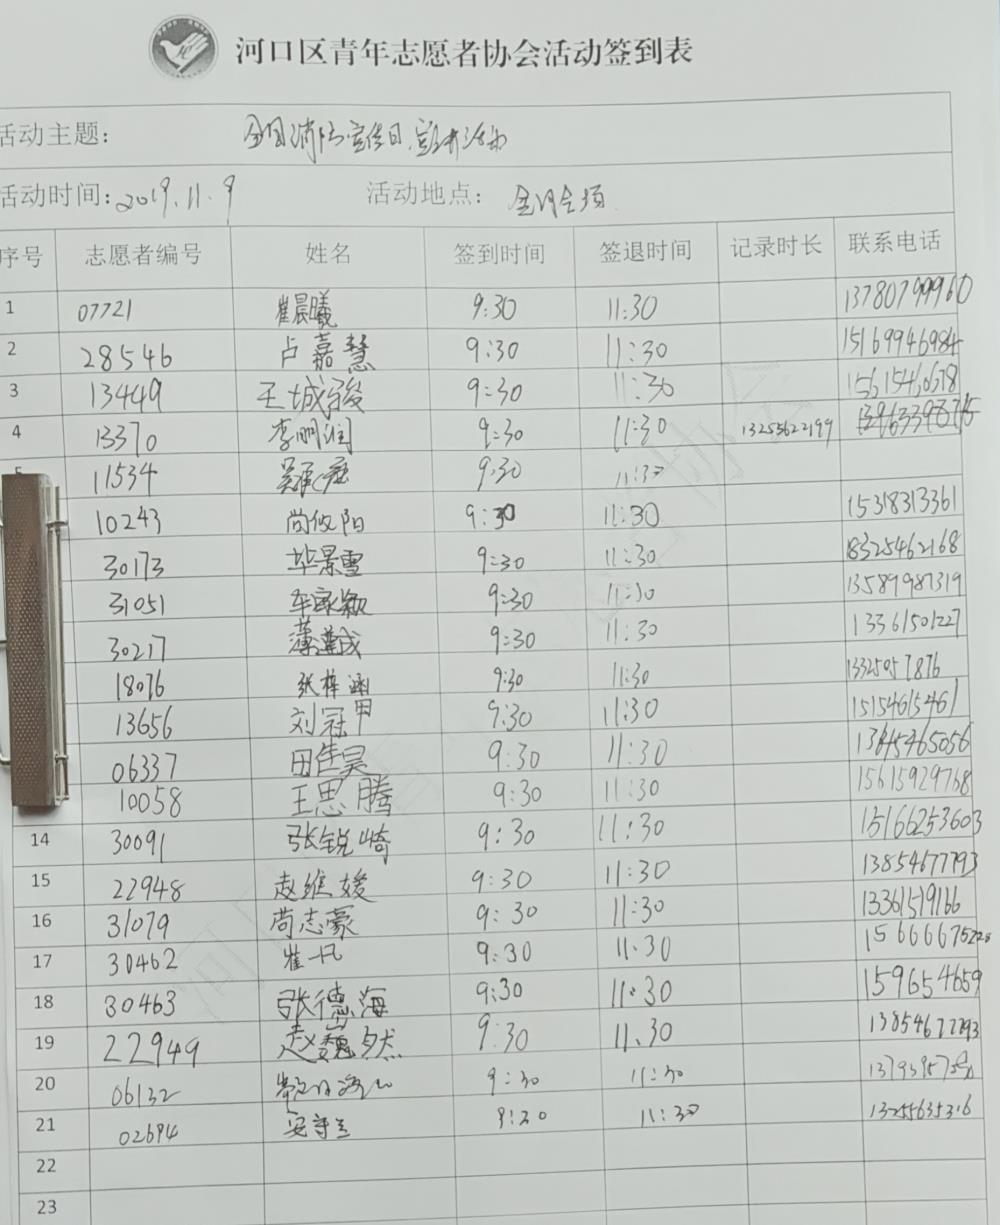 河口区青年志愿者协会活动签到表
活动主题: 全国消防宣传日宣传活动
活动时间:2019.11.9 活动地点:
序号 志愿者编号 姓名 签到时间 签退时间 记录时长 联系电话
1 07721 崔晨曦 9:30 11:30 13780799960
2 28546 卢嘉慧 9:30 11:30 15169946984
3 13449 王城骏 9:30 11:30 15615460678
4 13370 李明润 9:30 11:30 13255622199
11534 9:30 11:30
10243 尚攸阳 9:30 11:30 15318313361
30173 毕景雪 9:30 11:30 18325462168
31051 车家颖 9:30 11:30 13589987319
30217 9:30 11:30 13361501227
18076 张梓涵 9:30 11:30 13325057876
13656 刘冠甲 9:30 11:30 15154615461
06337 田佳昊 9:30 11:30 13645465056
10058 王思腾 9:30 11:30 15615929768
14 30091 张锐崎 9:30 11:30 15166253603
15 22948 赵维媛 9:30 11:30 13854677793
16 31079 尚志豪 9:30 11:30 13361519166
17 30462 崔凡 9:30 11.30
18 30463 张德海 9:30 11:30 1596554659
19 22949 赵魏然 9:30 11.30 13854677793
20 06132 9:30 11:30
21 02694 安守兰 9:30 11:30 13255635316
22
23